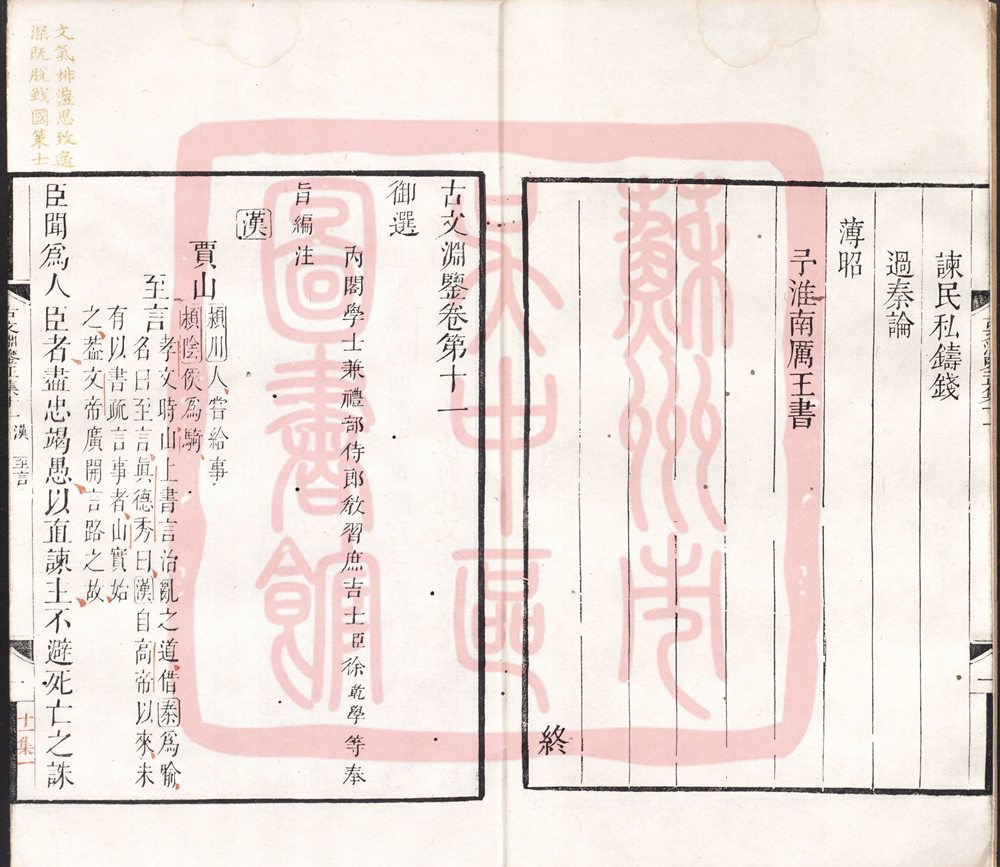 諫民私鑄錢
過秦論
薄昭
予淮南厲王書
終
古文淵鑒卷第十一
御選
內閣學士兼禮部侍郎教習庶吉士臣徐乾學等奉
旨編注
漢
賈山
潁川人嘗給事
潁陰侯爲騎
至言
孝文時山上書言治亂之道借秦爲喻
名曰至言眞德秀曰漢自高帝以來未
有以書疏言事者山實始
之葢文帝廣開言路之故
臣聞爲人臣者盡忠竭愚以直諫主不避死亡之誅
文氣排盪思致遙
深既脫戰國策士
古文淵鑒正集十一
漢
至言
一
十一集一
蘇州市
吳中區
圖書館